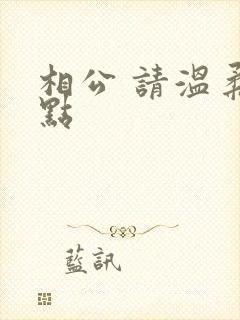 相公 請溫柔
點
藍訊